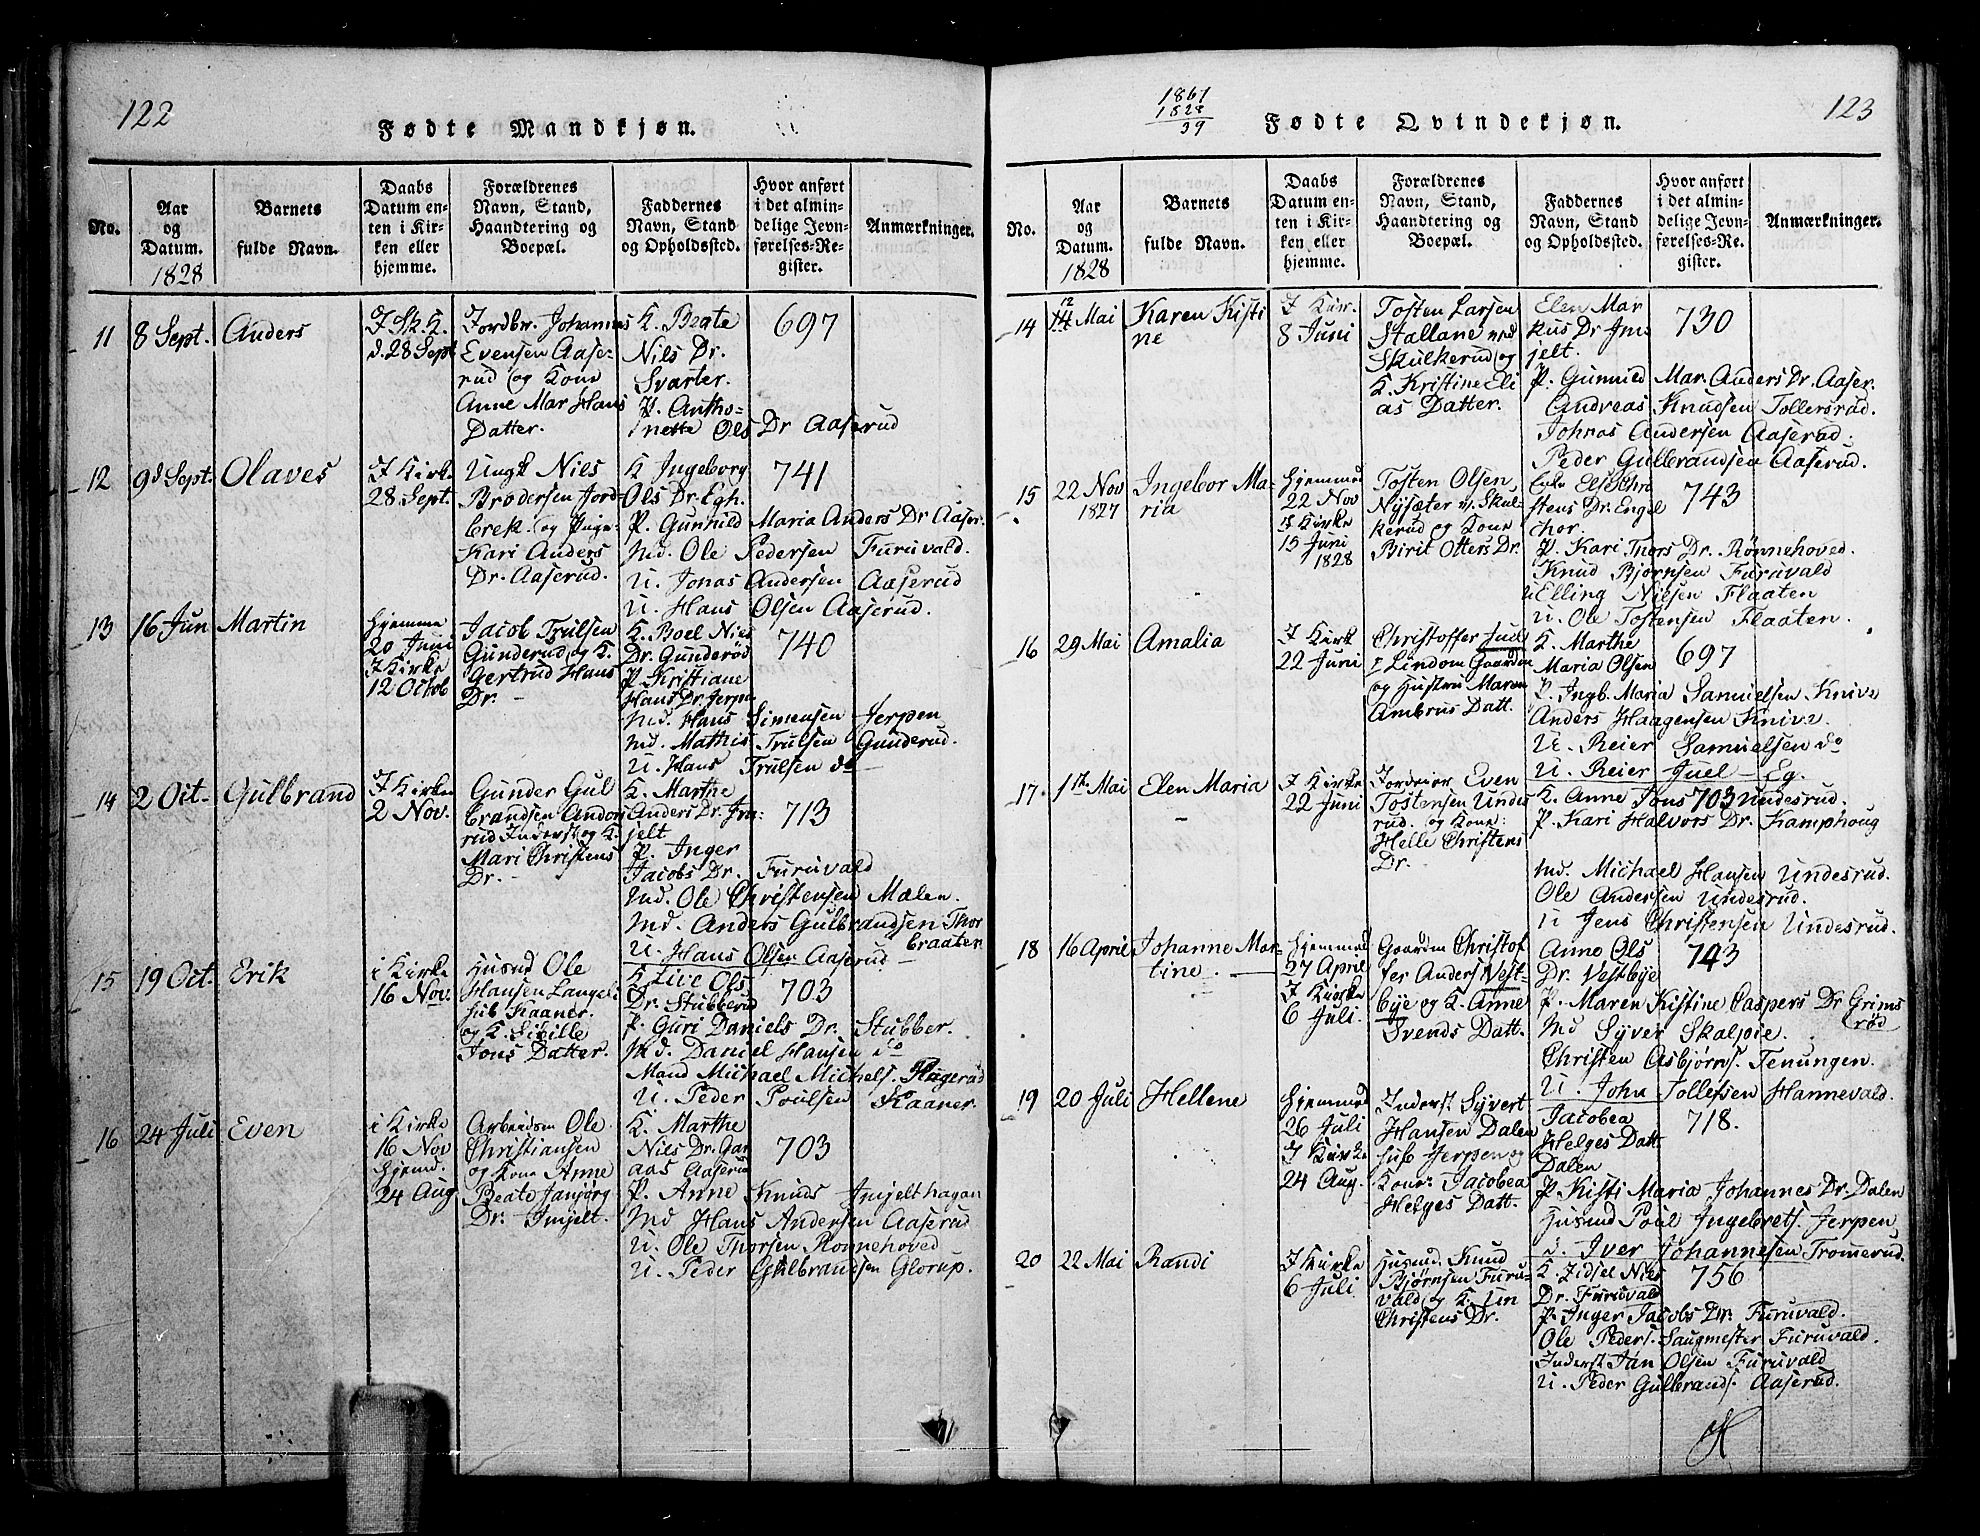 122
Fødte Mandkjøn.
No.
Aar og Datum. 1828
Barnets fulde Navn.
Daabs Datum enten i Kirken eller hjemme.
Forældrenes Navn, Stand, Haandtering og Boepæl.
Faddernes Navn, Stand og Opholdssted.
Hvor anført i det almindelige Jevnførelses-Register.
Anmærkninger.
11
8 Sept.
Anders
I Sk. K.
d. 28 Sept
Jordbr. Johannes
Evensen Aase-
rud og Kone
Anne Mar Hans
Datter.
K. Beate
Nils Dr.
Svarter.
P. Antho-
nette Ols Dr Aaserud
697
12
9d Sept.
Olaves
I Kirke
28 Sept.
Ungk Niels
Brodersen Jord-
brek. og Pige
Kari Anders
Dr. Aaserud.
K Ingeborg
Ols Dr. Egh.
P. Gunnild Maria Anders Dr Aaser.
Md. Ole Pedersen Furuvald.
U. Jonas Andersen Aaserud
U. Hans Olsen Aaserud.
741
13
16 Jun
Martin
Hjemme
20 Juni
I Kirke
12 Octob
Jacob Trulsen
Gunderud og K.
Gertrud Hans
Dr.
K. Boel Niels
Dr. Gunderød
P. Kristiane
Hans Dr. Jerpen
Md. Hans Simensen Jerpen
Md. Mathis Trulsen Gunderud.
U. Hans Trulsen do
740
14
2 Oct.
Gulbrand
I Kirke
2 Nov.
Gunder Gul
brandsen Andors
rud Inderst og K.
Mari Christens
Dr.
K. Marthe
Anders Dr. Jm-
jelt
P. Inger
Jacobs Dr. Furuvald
Md. Ole Christensen Mælen.
Md. Anders Gulbrandsen Thor
braaten
U. Hans Olsen Aaserud
713
15
19 Oct.
Erik
i Kirke
16 Nov.
Husmd Ole
Hansen Langeli
sub Kaaner.
og K. Siville
Jons Datter.
K Live Ols
Dr. Stubberud
P. Guri Daniels Dr. Stubber.
Md. Daniel Hansen do
Mand Michael Michels. Flagerud
U. Peder Poulsen Kaaner.
703
16
24 Juli
Even
i Kirke
16 Nov
hjemd.
24 Aug
Arbeidsm Ole
Christiansen
og Kone Anne
Beate Janjørg
Dr. Imjelt.
K. Marthe
Nils Dr. Gar
aas Aaserud
P. Anne Knuds Imjelthagan
Md Hans Andersen Aaserud
U. Ole Thorsen Ronnehoved
U. Peder Gulbrandsen Glorup.
703
1861
1828
39
Fødte Qvindekjøn.
123
No.
Aar og Datum. 1828
Barnets fulde Navn.
Daabs Datum enten i Kirken eller hjemme.
Forældrenes Navn, Stand, Haandtering og Boepæl.
Faddernes Navn, Stand og Opholdssted.
Hvor anført i det almindelige Jevnførelses-Register.
Anmærkninger.
14
12
14 Mai
Karen Kisti
ne
I Kir.
8 Juni
Tosten Larsen
Stallane ned
Skulkerud og
K. Kristine Eli
as Datter.
Elen Mar
kus Dr Jm
jelt.
P. Gunnild Mar. Anders Dr. Aaser.
Andreas Knudsen Tollersrud.
Johnas Andersen Aaserud.
Peder Gulbrandsen Aaserud.
730
15
22 Nov
1827
Ingebor Ma-
ria
hjemmed
22 Nov
I Kirke
15 Juni
1828
Tosten Olsen
Nysæter v. Skul-
kerud og Kone
Birit Otters Dr.
Enke Else Chri
stens Dr. Engel
chor.
P. Kari Thors Dr. Rønnehoved.
Knud Bjornsen Furuvald
U Elling Nilsen Flaaten
U. Ole Tostensen Flaaten.
743
16
29 Mai
Amalia
I Kirke
22 Juni
Christoffer Juel
Lindom Gaarden
og Hustru Maren
Ambrus Datt.
K. Marthe
Maria Olsen
P. Ingb. Maria Samuelsen Knive
Anders Haagensen Knive.
U. Reier Samuelsen do
U. Reier Juel - Eg.
697
17
1te Mai
Elen Maria
I Kirke
22 Juni
Jordeier Even
Tostensen Undes
rud. og Kone:
Helle Christens
Dr.
K. Anne Jons 703 Undesrud.
P. Kari Halvors Dr. Kamphoug
Md. Michael Hansen Undesrud.
Ole Andersen Undesrud.
U Jens Christensen Undesrud.
18
16 April
Johanne Mar-
tine.
hjemmed
27 April
I Kirke
6 Juli.
Gaardm Christof
fer Anders Vest-
bye og K. Anne
Svends Datt.
Anne Ols
Dr. Vestbye
P. Maren Kistine Caspers Dr Grims
rød
Md Syver Skalpie.
Christen Asbjørns. Tenungen.
U. John Tollefsen Hannevald.
743
19
20 Juli
Hellene
hjemmed
26 Juli
I Kirke
24 Aug.
Inderst Syvert
Hansen Dalen
sub Jerpen og
Kone: Jacobea
Helges Datt.
Jacobea
Helges Datt.
Dalen
P Kisti Maria Johannes Dr. Dalen
Husmd Poul Ingebrets. Jerpen
U. Iver Johannesen Tromerud.
718.
20
22 Mai
Randi
I Kirke
6 Juli
Husmd. Knud
Bjørnsen Furu-
vald og K. Lin
Christens Dr.
K. Zidsel Nils
Dr. Furuvald
P. Inger Jacobs Dr. Furuvald.
Ole Peders. Saugmester Furuvald.
Inderst Jan Olsen Furuvald
U. Peder Gulbrands. Aaserud.
756